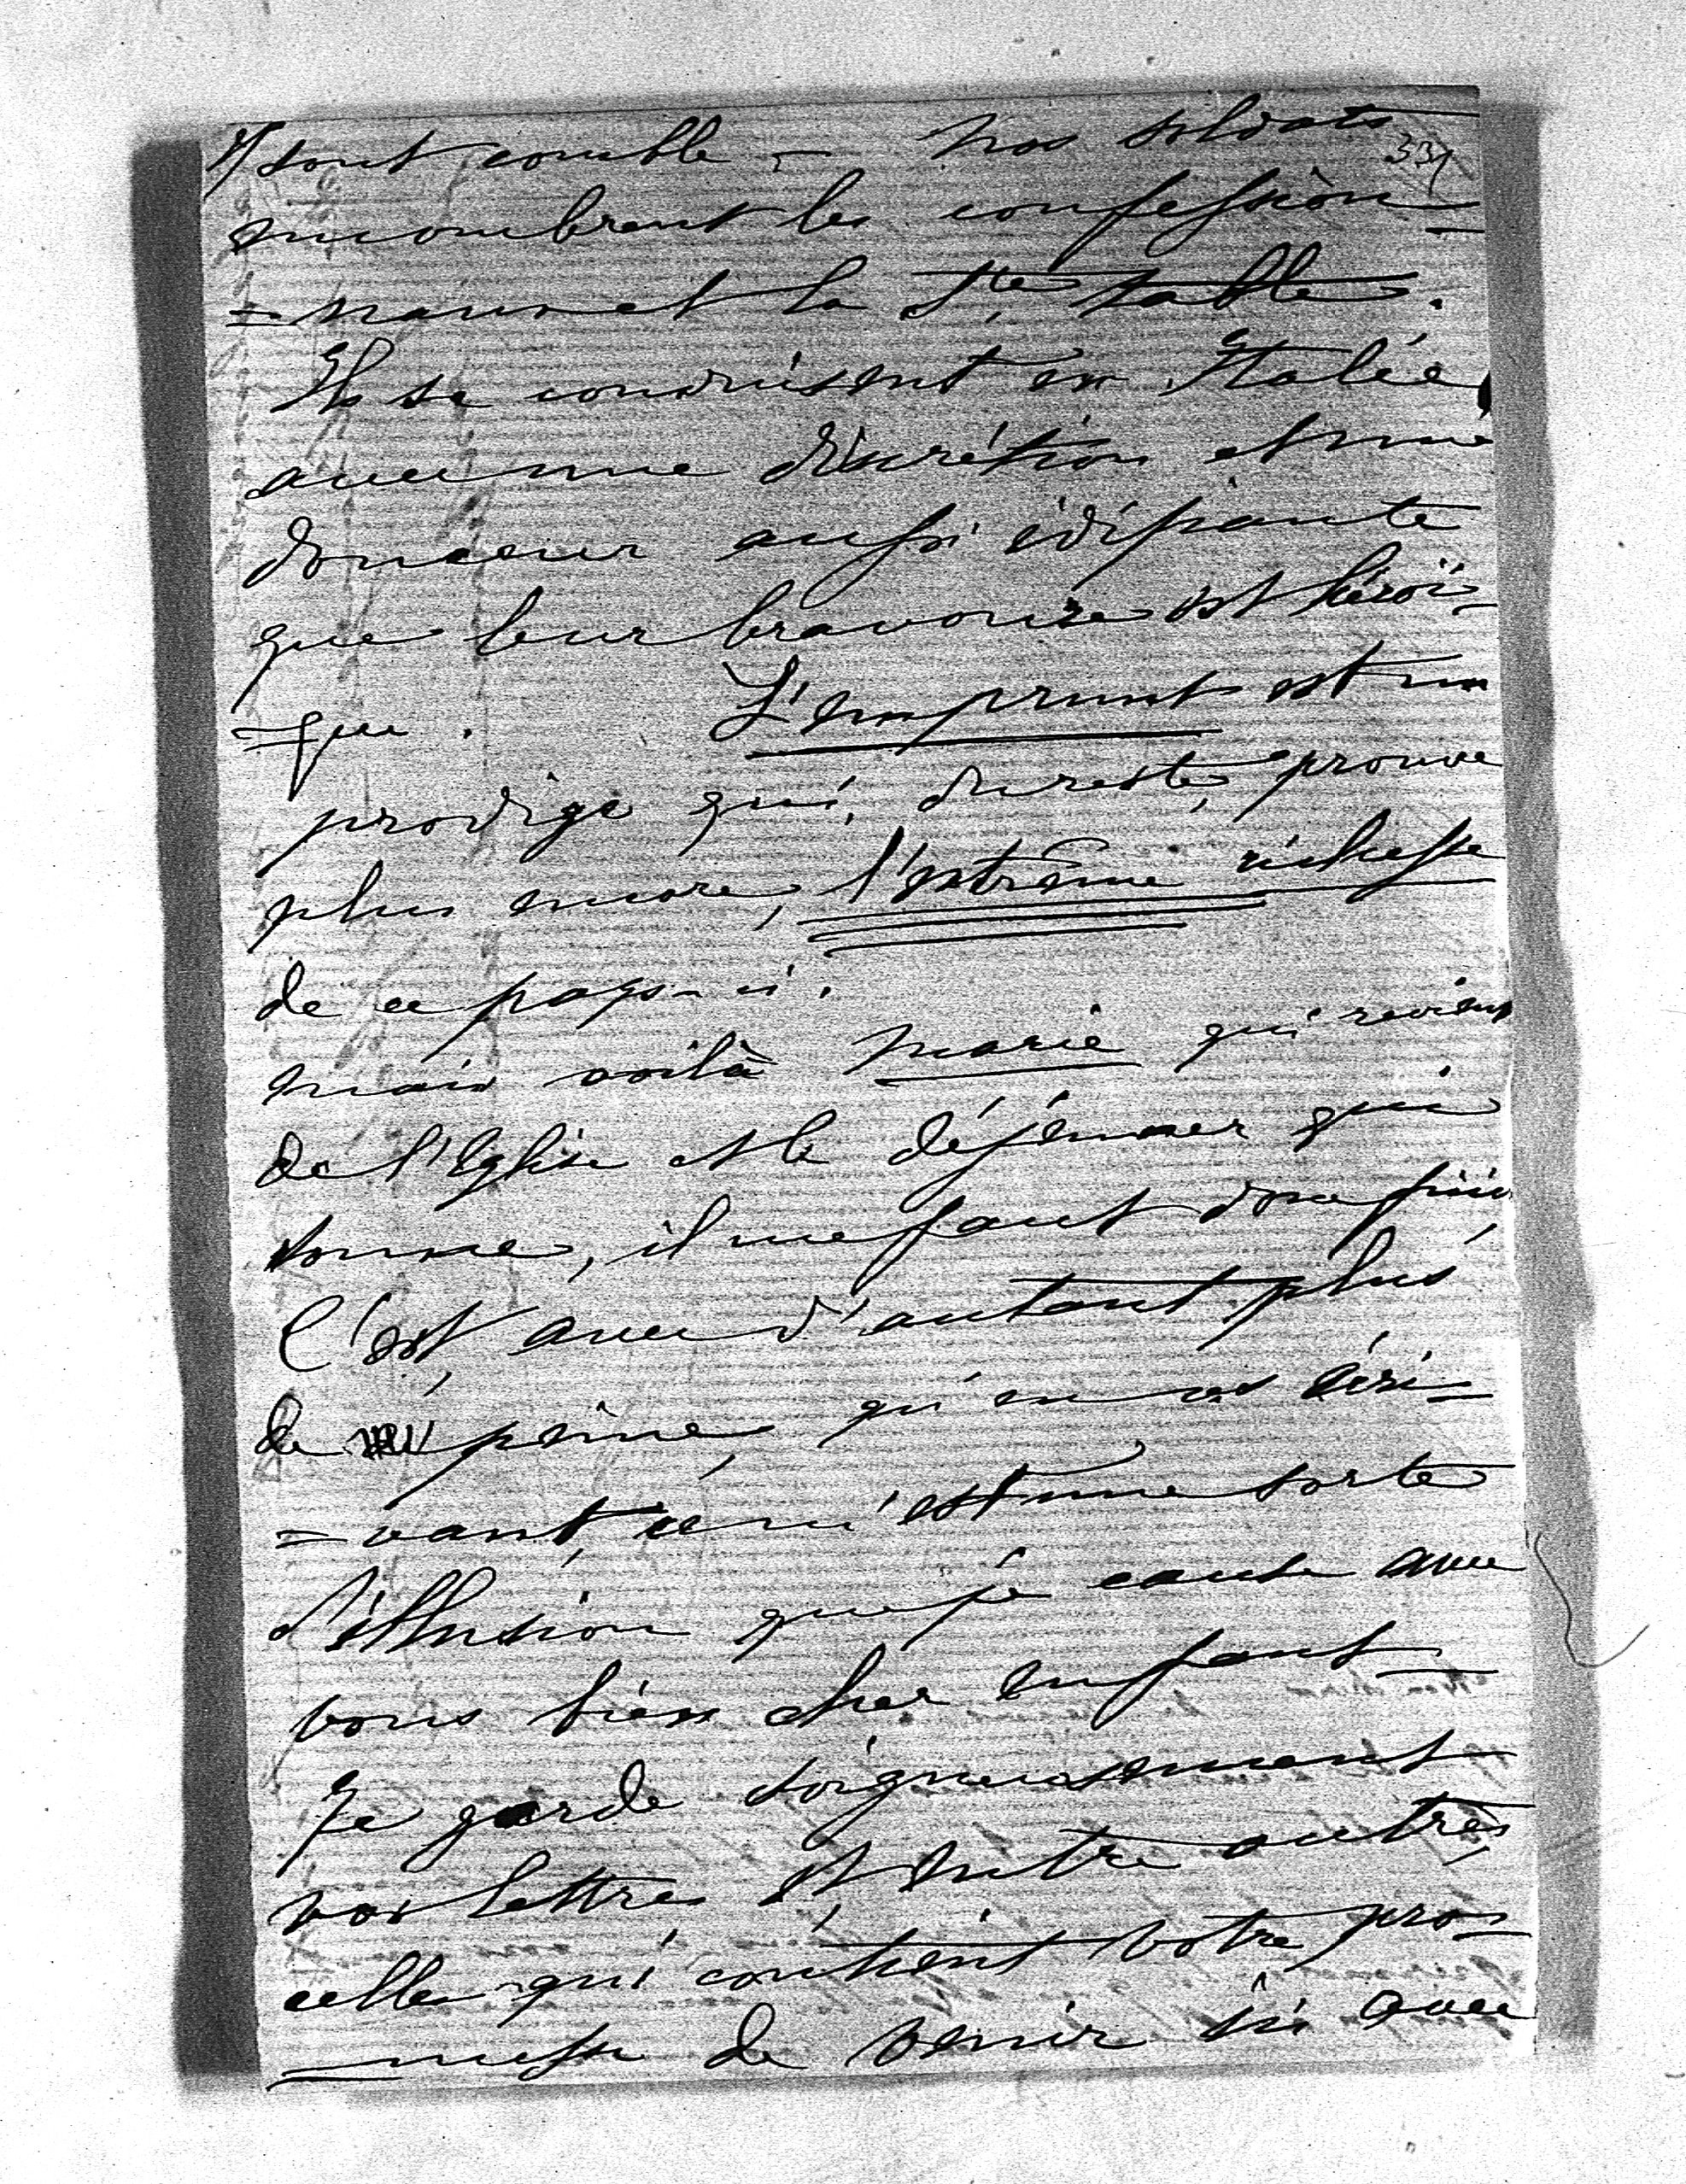 y sont comble – nos soldats
331
encombrent les confession=
=naux et la Ste table.
Ils se conduisent en Italie
avec une discrétion et une
douceur aussi édifiante
que leur bravoure est héroï=
=que. L'emprunt est un
prodige qui, du reste, prouve
plus encore, l'extrême richesse
de ce pays-ci.
mais voilà Marie qui revient
de l'Eglise et le déjeuner qui
sonne, il me faut donc finir,
C'est, avec d'autant plus
de peine, qu'en vos écri=
=vant, ce m'est une sorte
d'illusion que je cause avec
vous bien cher enfant –
Je garde soigneusement
vos lettres et, entre autres,
celle qui contient votre pro=
=messe de venir ici avec